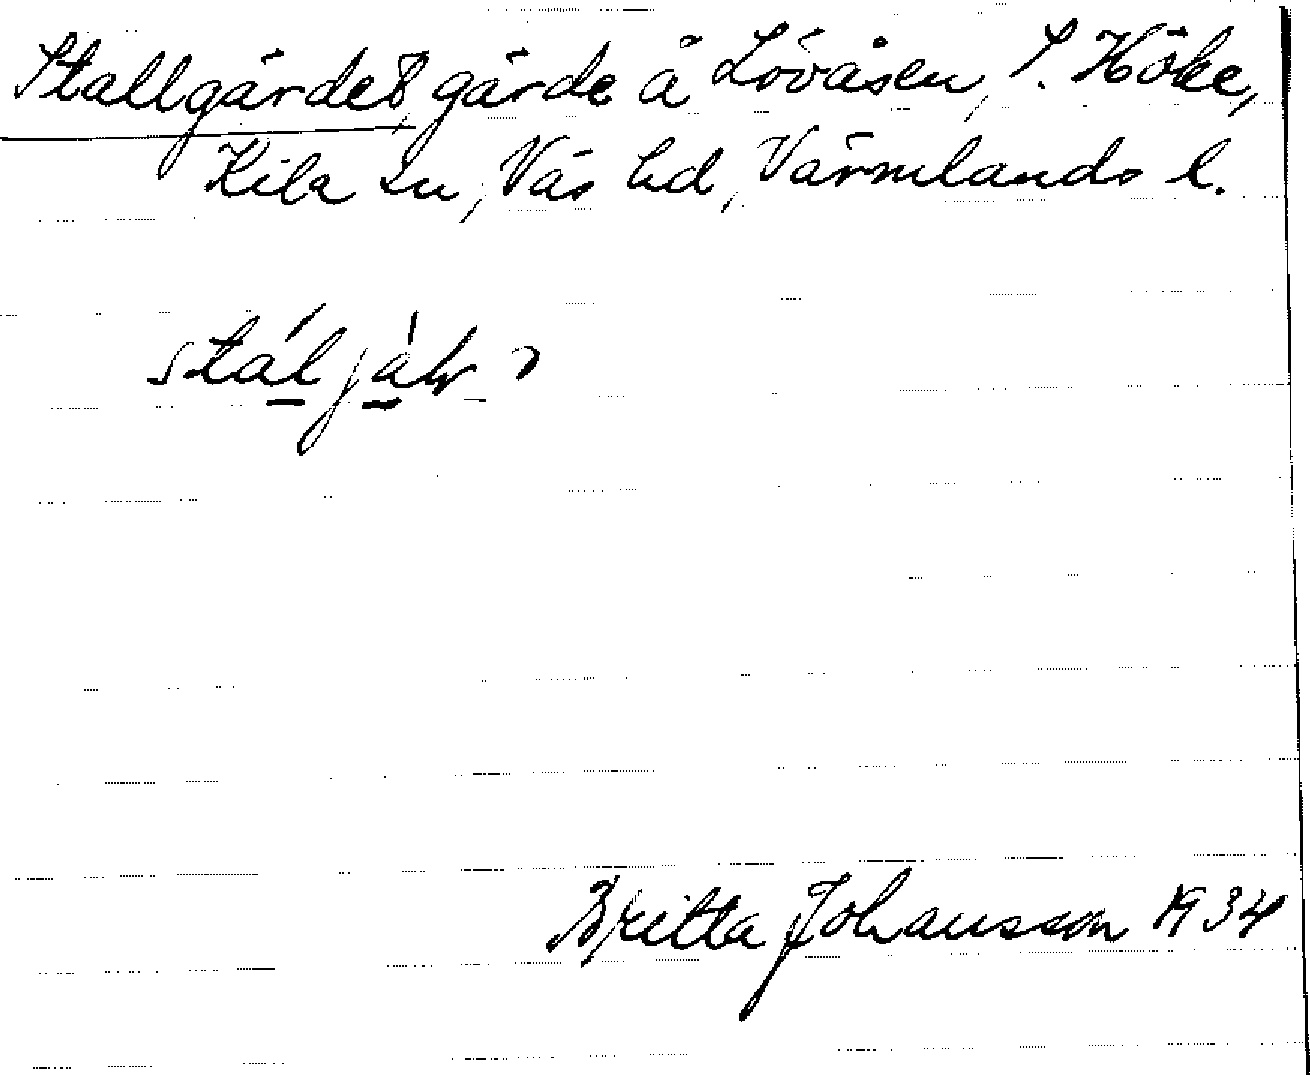 Stallgärdet, gärde å Lövåsen, S. Höke,
Kila sn, Näs hd, Värmlands l.
Britta Johansson 1934